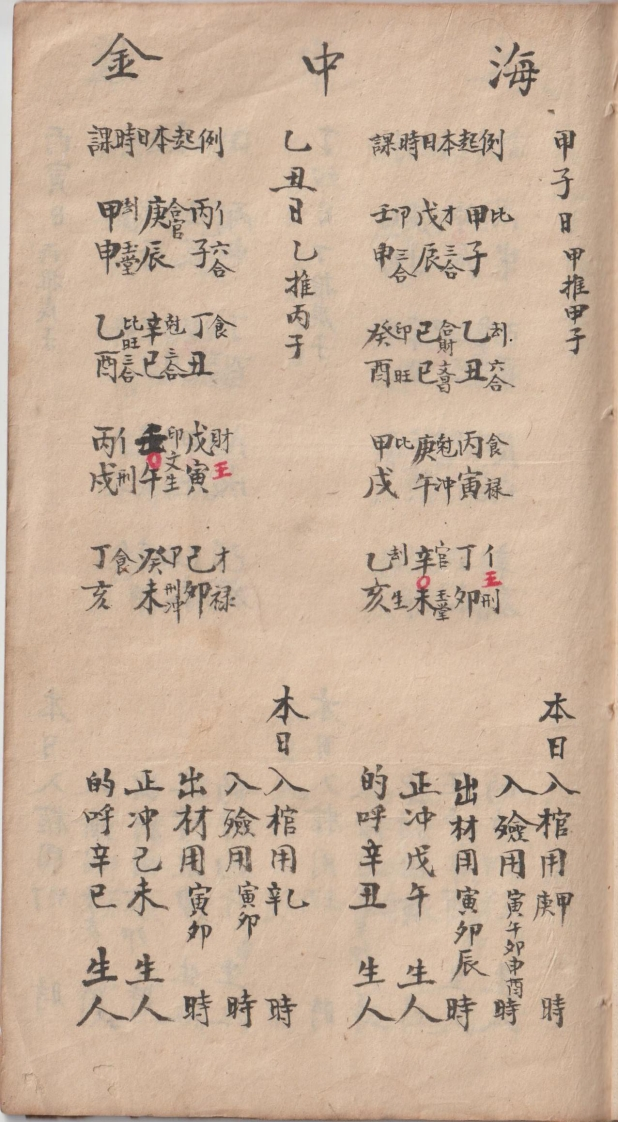 海中金
甲子日甲推甲子
例起本日時課
甲比子 戊才辰三合 壬卩申三合
乙刦丑六合 己合財巳文昌 癸印酉旺
丙食寅祿 庚尅午冲 甲比戌
丁亻卯王刑 辛官未玉堂 乙刦亥生
本日入棺用甲庚時
入殮用寅午卯申酉時
出材用寅卯辰時
正冲戊午生人
的呼辛丑生人
乙丑日乙推丙子
例起本日時課
丙亻子六合 庚合官辰 甲刦申玉堂
丁食丑 辛尅巳三合 乙比旺酉三合
戊財寅王 壬印午文生 丙亻戌刑
己才卯祿 癸卩未刑冲 丁食亥
本日入棺用辛乙時
入殮用寅卯時
出材用寅卯時
正冲己未生人
的呼辛巳生人